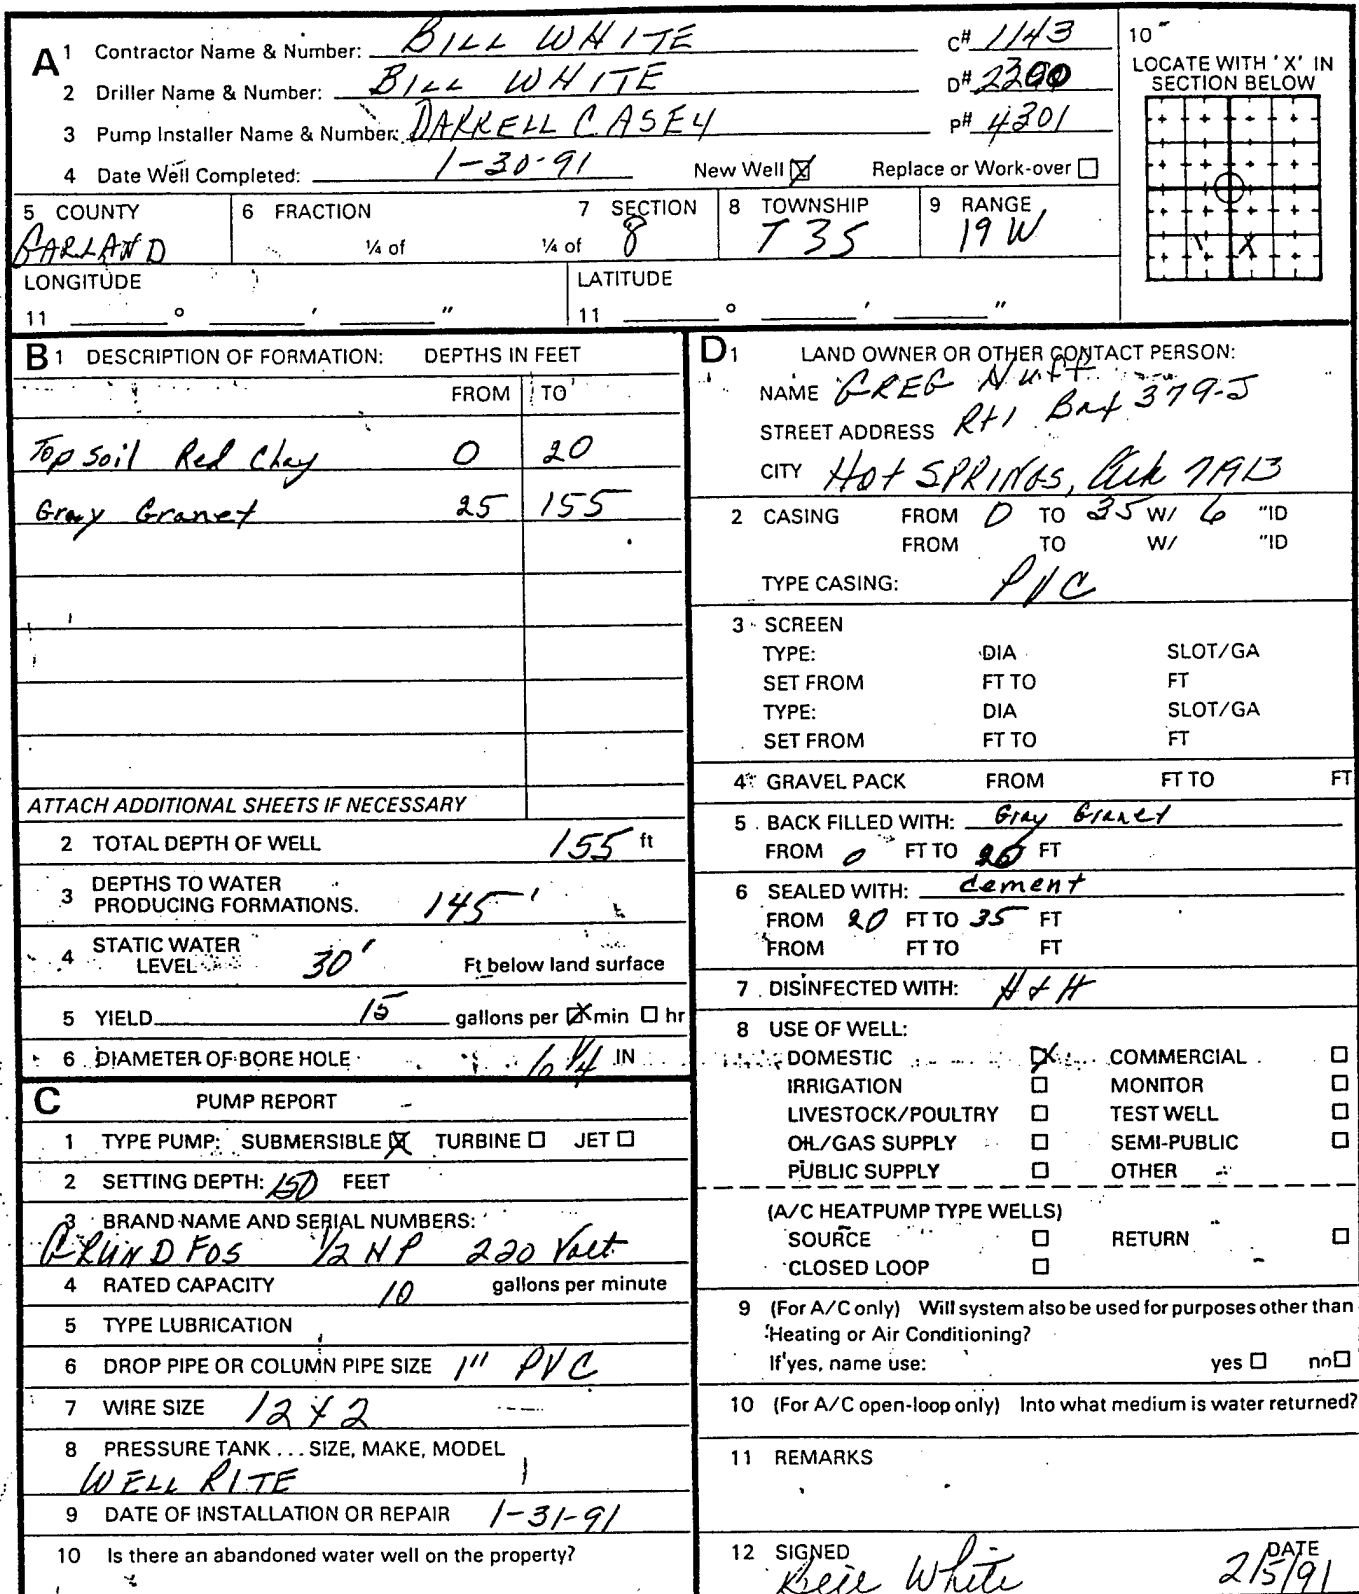 A 1 Contractor Name & Number: BILL WHITE C# 1143
2 Driller Name & Number: BILL WHITE D# 2200
3 Pump Installer Name & Number: DARRELL CASEY P# 4301
4 Date Well Completed: 1-30-91 New Well ☒ Replace or Work-over ☐
10
LOCATE WITH 'X' IN
SECTION BELOW
X
5 COUNTY 6 FRACTION 7 SECTION 8 TOWNSHIP 9 RANGE
GARLAND ¼ of ¼ of 8 T 3S 19 W
LONGITUDE LATITUDE
11 ° ' " 11 ° ' "
B 1 DESCRIPTION OF FORMATION: DEPTHS IN FEET
FROM TO
Top Soil Red Clay 0 20
Gray Granet 25 155
ATTACH ADDITIONAL SHEETS IF NECESSARY
2 TOTAL DEPTH OF WELL 155 ft
3 DEPTHS TO WATER
PRODUCING FORMATIONS. 145'
4 STATIC WATER
LEVEL 30' Ft below land surface
5 YIELD 15 gallons per ☒ min ☐ hr
6 DIAMETER OF BORE HOLE 6 1/4 IN
C PUMP REPORT
1 TYPE PUMP: SUBMERSIBLE ☒ TURBINE ☐ JET ☐
2 SETTING DEPTH: 150 FEET
3 BRAND NAME AND SERIAL NUMBERS:
GRUNDFOS 1/2 HP 220 Volt
4 RATED CAPACITY 10 gallons per minute
5 TYPE LUBRICATION
6 DROP PIPE OR COLUMN PIPE SIZE 1" PVC
7 WIRE SIZE 12 x 2
8 PRESSURE TANK ... SIZE, MAKE, MODEL
WELL RITE
9 DATE OF INSTALLATION OR REPAIR 1-31-91
10 Is there an abandoned water well on the property?
D 1 LAND OWNER OR OTHER CONTACT PERSON:
NAME GREG Huft
STREET ADDRESS Rt 1 Box 379-J
CITY HOt SPRINGS, Ark 71913
2 CASING FROM 0 TO 35 W/ 6 "ID
FROM TO W/ "ID
TYPE CASING: PVC
3 SCREEN
TYPE: DIA SLOT/GA
SET FROM FT TO FT
TYPE: DIA SLOT/GA
SET FROM FT TO FT
4 GRAVEL PACK FROM FT TO FT
5 BACK FILLED WITH: Gray Granet
FROM 0 FT TO 20 FT
6 SEALED WITH: Cement
FROM 20 FT TO 35 FT
FROM FT TO FT
7 DISINFECTED WITH: H+H
8 USE OF WELL:
DOMESTIC ☒ COMMERCIAL ☐
IRRIGATION ☐ MONITOR ☐
LIVESTOCK/POULTRY ☐ TEST WELL ☐
OIL/GAS SUPPLY ☐ SEMI-PUBLIC ☐
PUBLIC SUPPLY ☐ OTHER
(A/C HEATPUMP TYPE WELLS)
SOURCE ☐ RETURN ☐
CLOSED LOOP ☐
9 (For A/C only) Will system also be used for purposes other than
Heating or Air Conditioning?
If yes, name use: yes ☐ no ☐
10 (For A/C open-loop only) Into what medium is water returned?
11 REMARKS
12 SIGNED DATE
Bill White 2/5/91